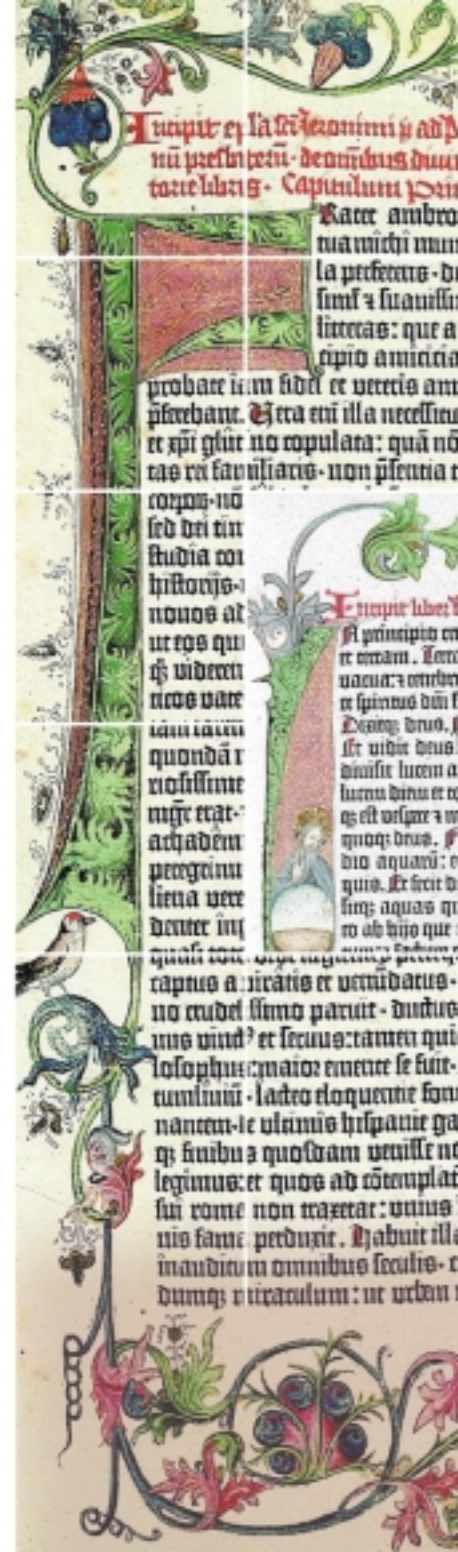 Incipit epl̄a sc̄i Jeronimi
nū presbiterū · de omībus diui
torie libris · Capitulum
Rater ambro
tua michi mun
la perferens · de
simul ⁊ suauissi
litteras : que a
cipio amicicia
probate iam fidei et veteris ami
p̄ferebant. Vera eni illa necessitu
et xp̄i glutino copulata : quā nō
tas rei familiaris · non p̄sentia t
corpor̄ · no
sed dei tim
studia con
historijs ·
nouos ad
ut eos qu
q̄ʒ viderent
ticos vate
quondā
riosissime
nigr̄ erat ·
achadēm
peregrinu
liena vere
denter inp
captus a piratis et venūdatus ·
no crudelissimo paruit · ductus
nus vinctꝰ et seruus : tamen qui
losophus : maior emente se fuit ·
tumliuiū · lacteo eloquentie fon
nantem · de vltimis hispanie ga
qʒ finibus quosdam venisse no
legimus : et quos ad cōtemplat
sui roma non traxerat : vnius
nis fama perduxit . Habuit illa
inauditum omnibus seculis ·
dumqʒ miraculum : ut urbem
Incipit liber
N principio cre
et terram . Terra
vacua : ⁊ tenebre
et spiritus dn̄i f
Dixitqʒ deus.
Et vidit deus
diuisit lucem a
lucem diem et te
qʒ est vespere ⁊ m
quoqʒ deus.
dio aquarū : e
quis. Et fecit d
sitqʒ aquas q
ro ab hijs que